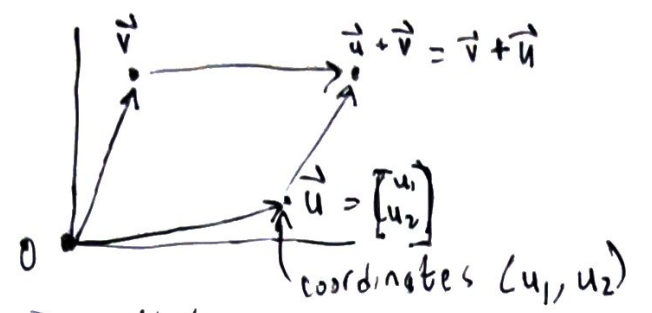 v⃗
u⃗ + v⃗ = v⃗ + u⃗
u⃗ = [u₁ u₂]
0
coordinates (u₁, u₂)